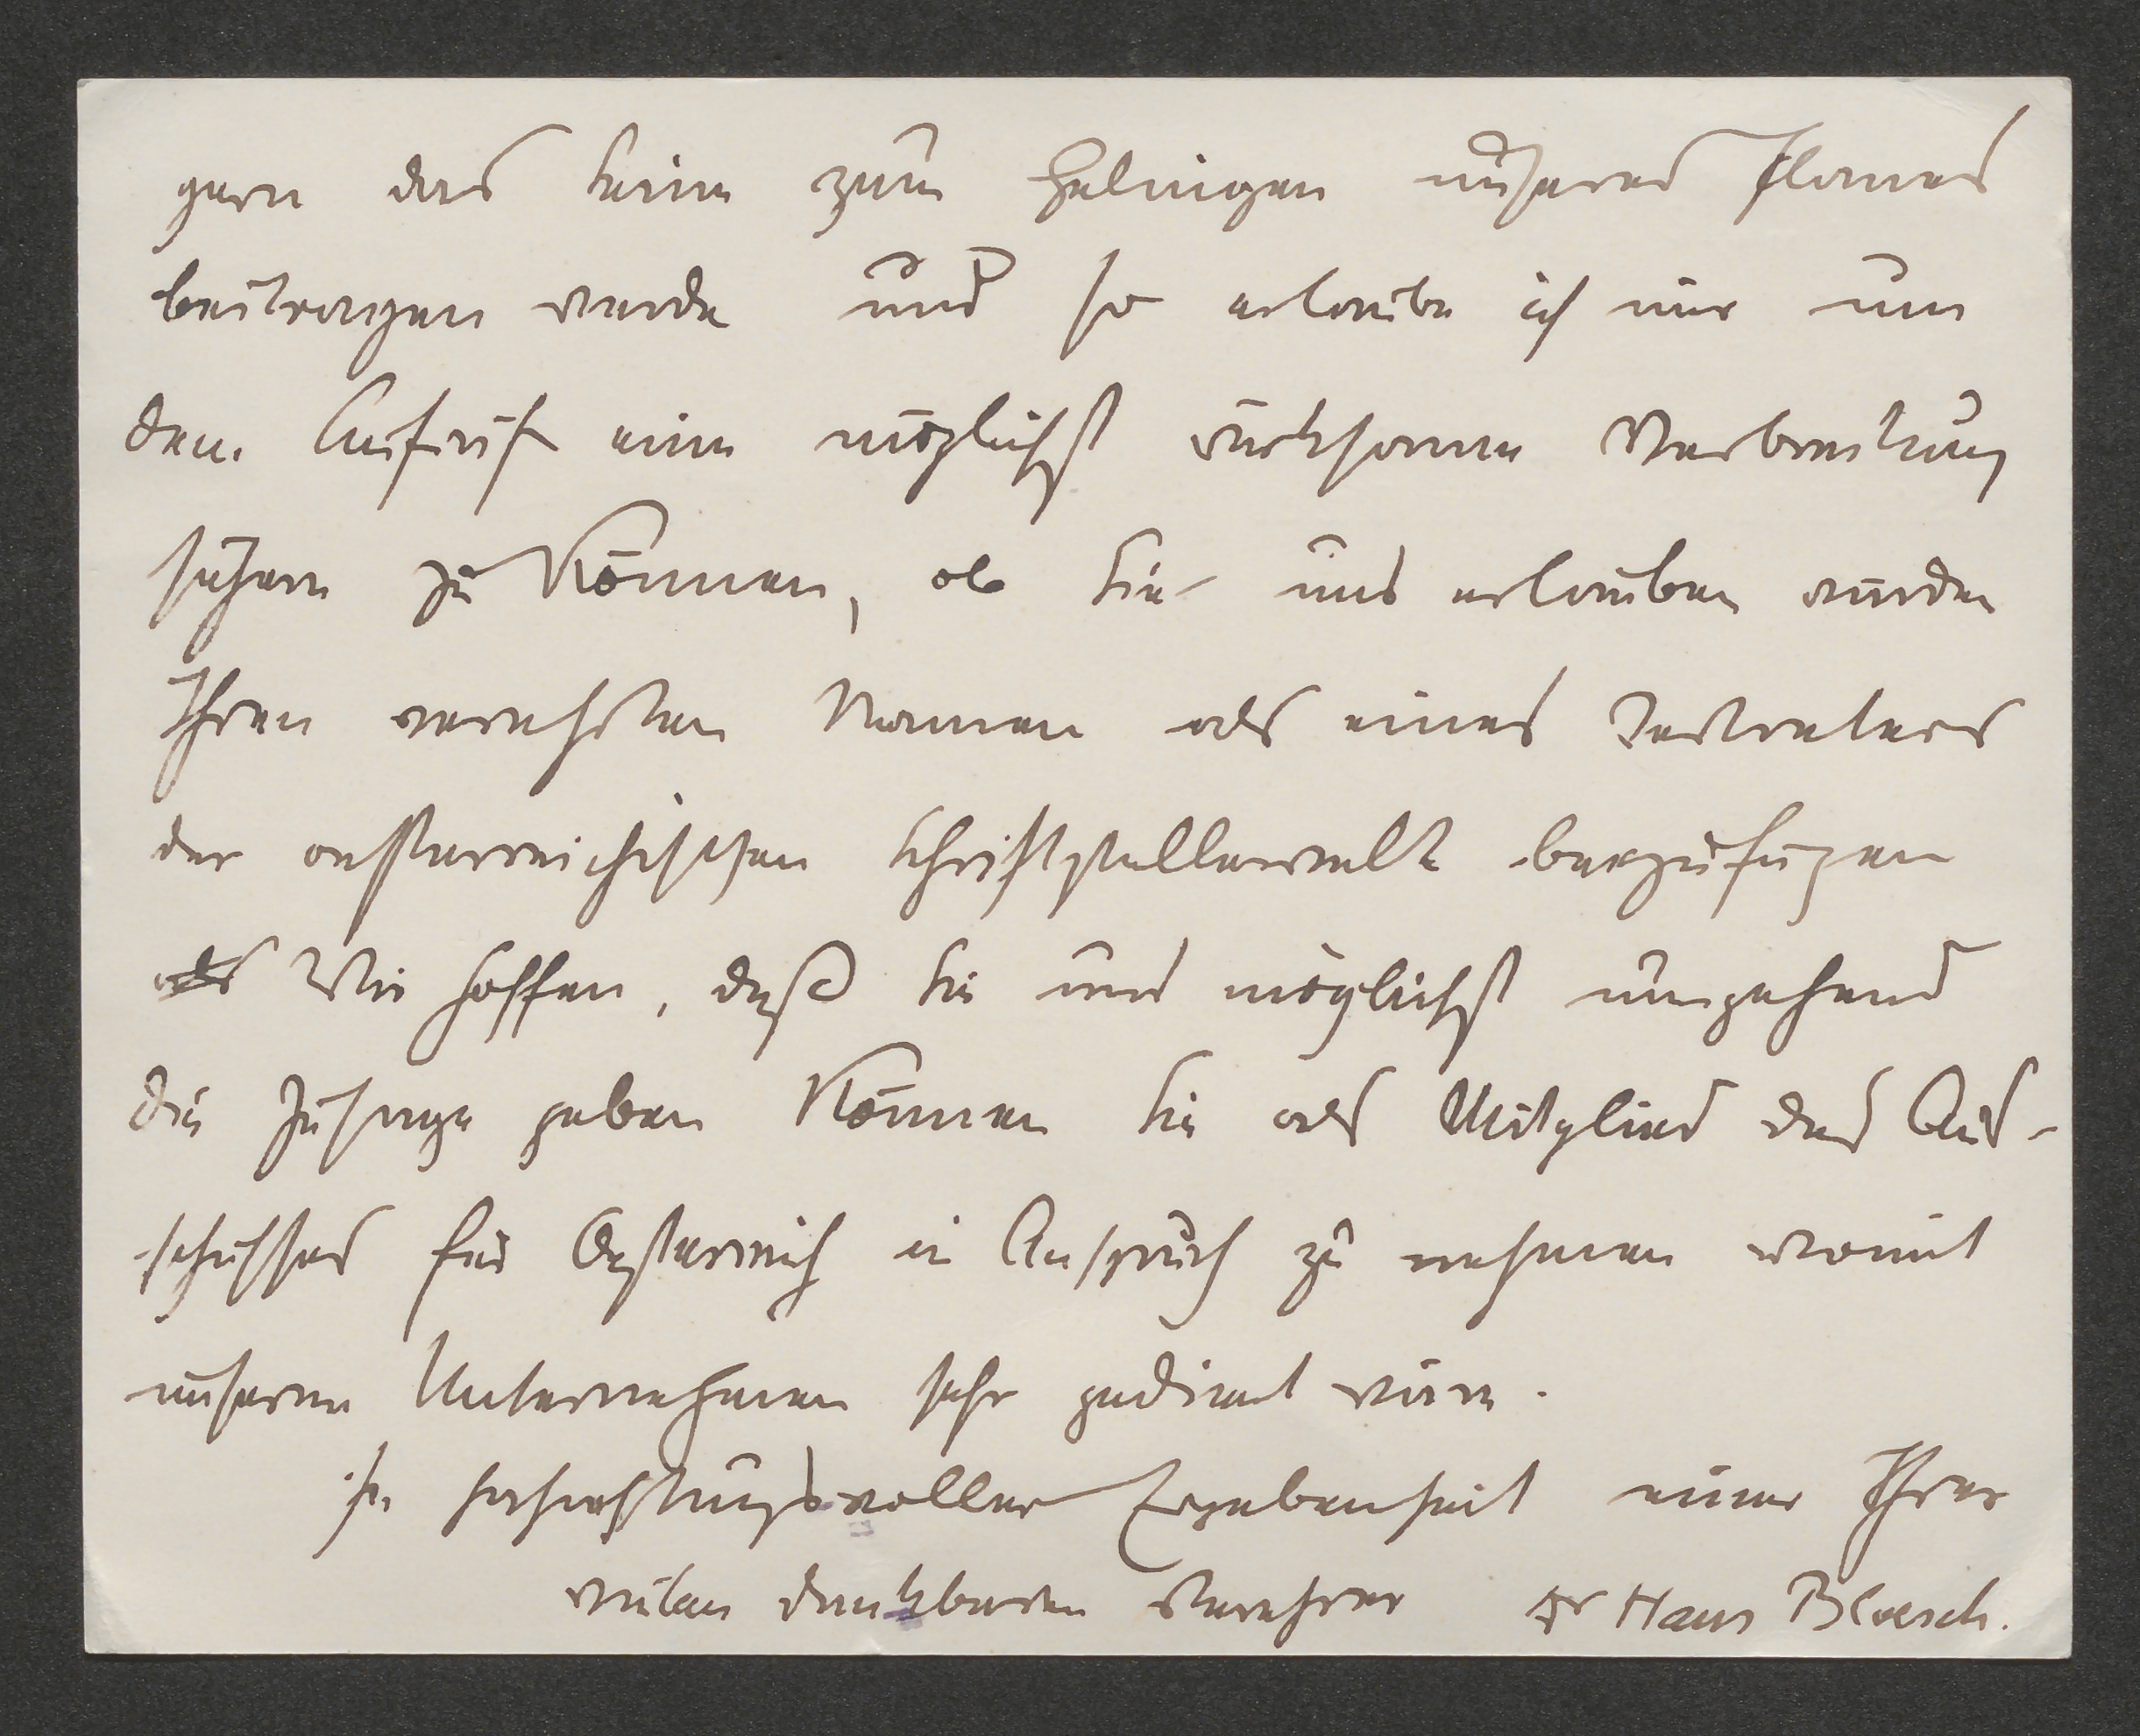 gern das Seine zum Gelingen unseres Planes
beitragen werde und so erlaube ich mir um
dem Aufruf eine möglichst wirksame Verbreitung
sichern zu können, ob Sie uns erlauben würden
Ihren verehrten Namen als eines Vertreters
der oesterreichischen Schriftstellerwelt beizufügen
als Wir hoffen, daß Sie uns möglichst umgehend
die Zusage geben können Sie als Mitglied des Aus-
schusses für Oesterreich in Anspruch zu nehmen womit
unserem Unternehmen sehr gedient wäre.
In hochachtungsvoller Ergebenheit einer Ihrer
vielen dankbaren Verehrer Dr Hans Bloesch.